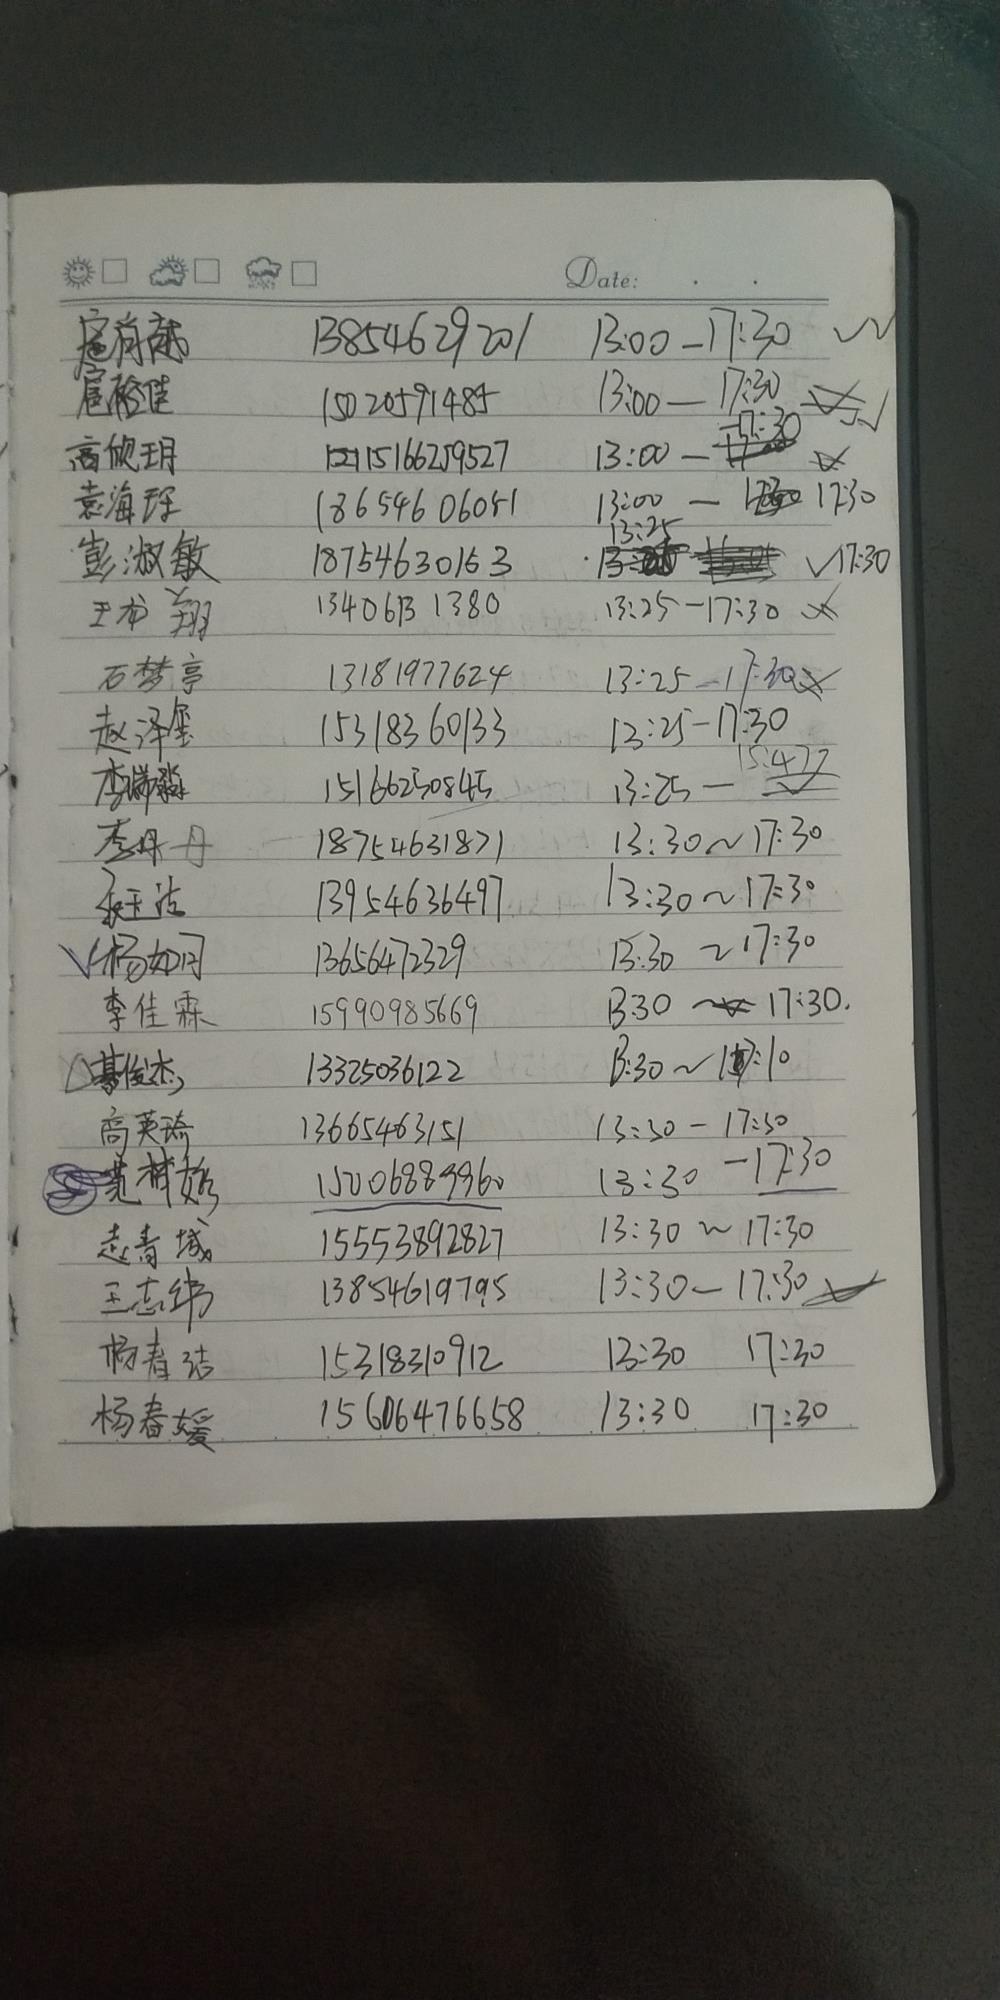 Date:
13854629201 13:00 — 17:30
15020591485 13:00 — 17:30
高欣玥 15166259527 13:00 — 17:30
袁海琛 18654606051 13:00 — 17:30
彭淑敏 18754630153 13:25 17:30
王书翔 13406131380 13:25 — 17:30
石梦亭 13181977624 13:25 — 17:30
赵泽玺 15318360133 13:25 — 17:30
李 15166250845 13:25 — 15:47
李丹丹 18754631871 13:30 ~ 17:30
13954636497 13:30 ~ 17:30
杨如月 13656472329 13:30 ~ 17:30
李佳霖 15990985669 13:30 ~ 17:30.
綦俊杰 13325036122 13:30 ~ 17:10
高英琦 13665463151 13:30 — 17:30
15206889960 13:30 — 17:30
赵青城 15553892827 13:30 ~ 17:30
王志纬 13854619795 13:30 — 17:30
杨春洁 15318310912 13:30 17:30
杨春媛 15606476658 13:30 17:30